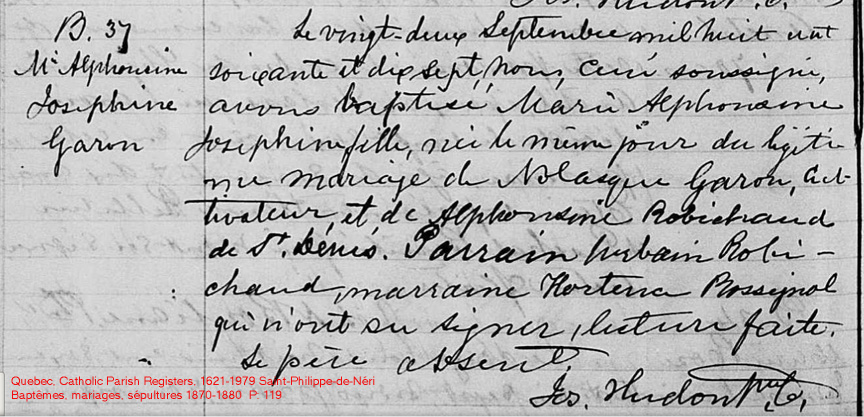 B. 37
Me Alphonsine
Josephine
Garon
Le vingt-deux Septembre mil huit cent
soixante et dix sept, nous, Curé soussigné,
avons baptisé Marie Alphonsine
Josephine, fille, née le même jour du légiti
me mariage de Nolasque Garon, Cul-
tivateur, et de Alphonsine Robichaud
de St. Denis. Parrain Urbain Robi-
chaud, marraine Hortense Rossignol
qui n'ont su signer, lecture faite.
Le père absent.
Jos. Hudon Ptre C.
Quebec, Catholic Parish Registers, 1621-1979 Saint-Philippe-de-Néri
Baptêmes, mariages, sépultures 1870-1880 P. 119